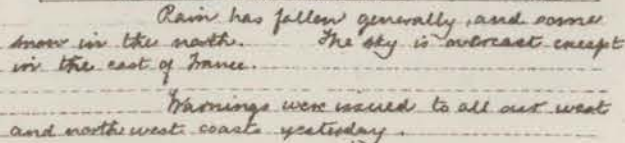 Rain has fallen generally, and some
snow in the north. The sky is overcast except
in the east of France.
Warnings were issued to all our west
and north west coasts yesterday.